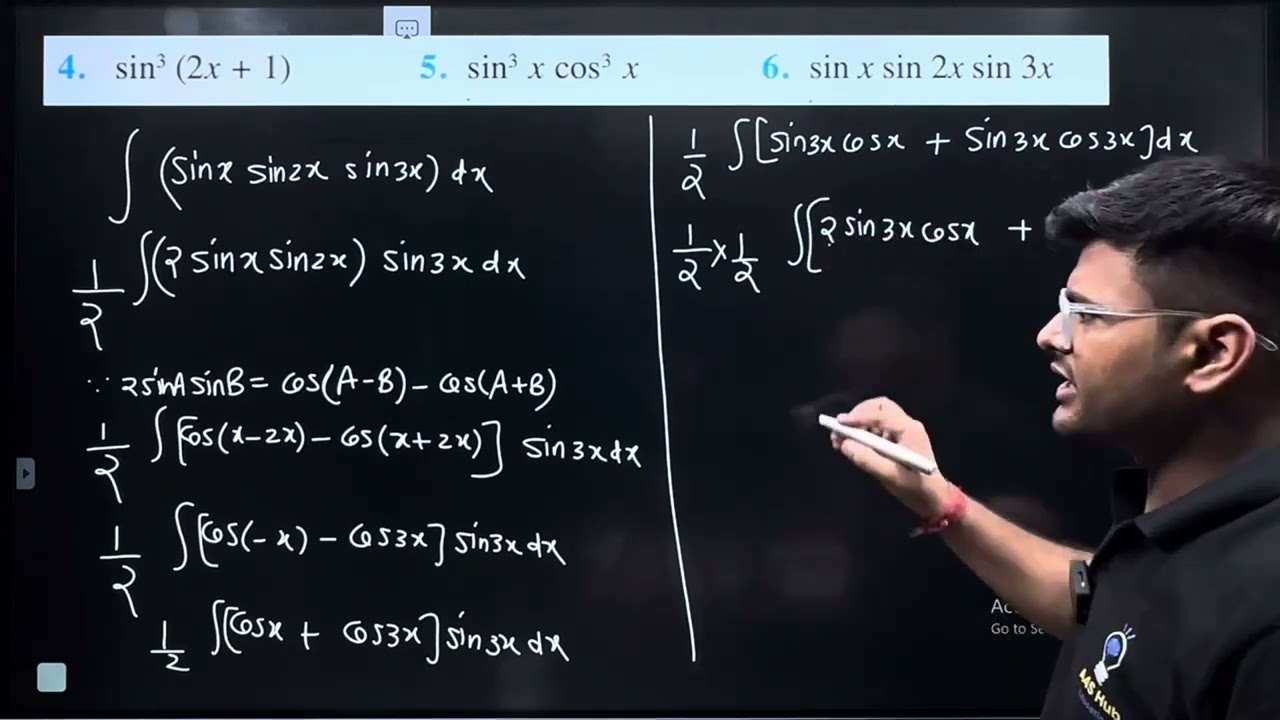 4. sin³ (2x + 1) 5. sin³ x cos³ x 6. sin x sin 2x sin 3x
∫ (sinx sin2x sin3x) dx
1/2 ∫(2 sinx sin2x) sin3x dx
∵ 2sinA sinB = cos(A-B) - cos(A+B)
1/2 ∫ [cos(x-2x) - cos(x+2x)] sin3x dx
1/2 ∫ [cos(-x) - cos3x] sin3x dx
1/2 ∫[cosx + cos3x] sin3x dx
1/2 ∫ [sin3x cosx + sin3x cos3x] dx
1/2 × 1/2 ∫[2 sin3x cosx +
Go to